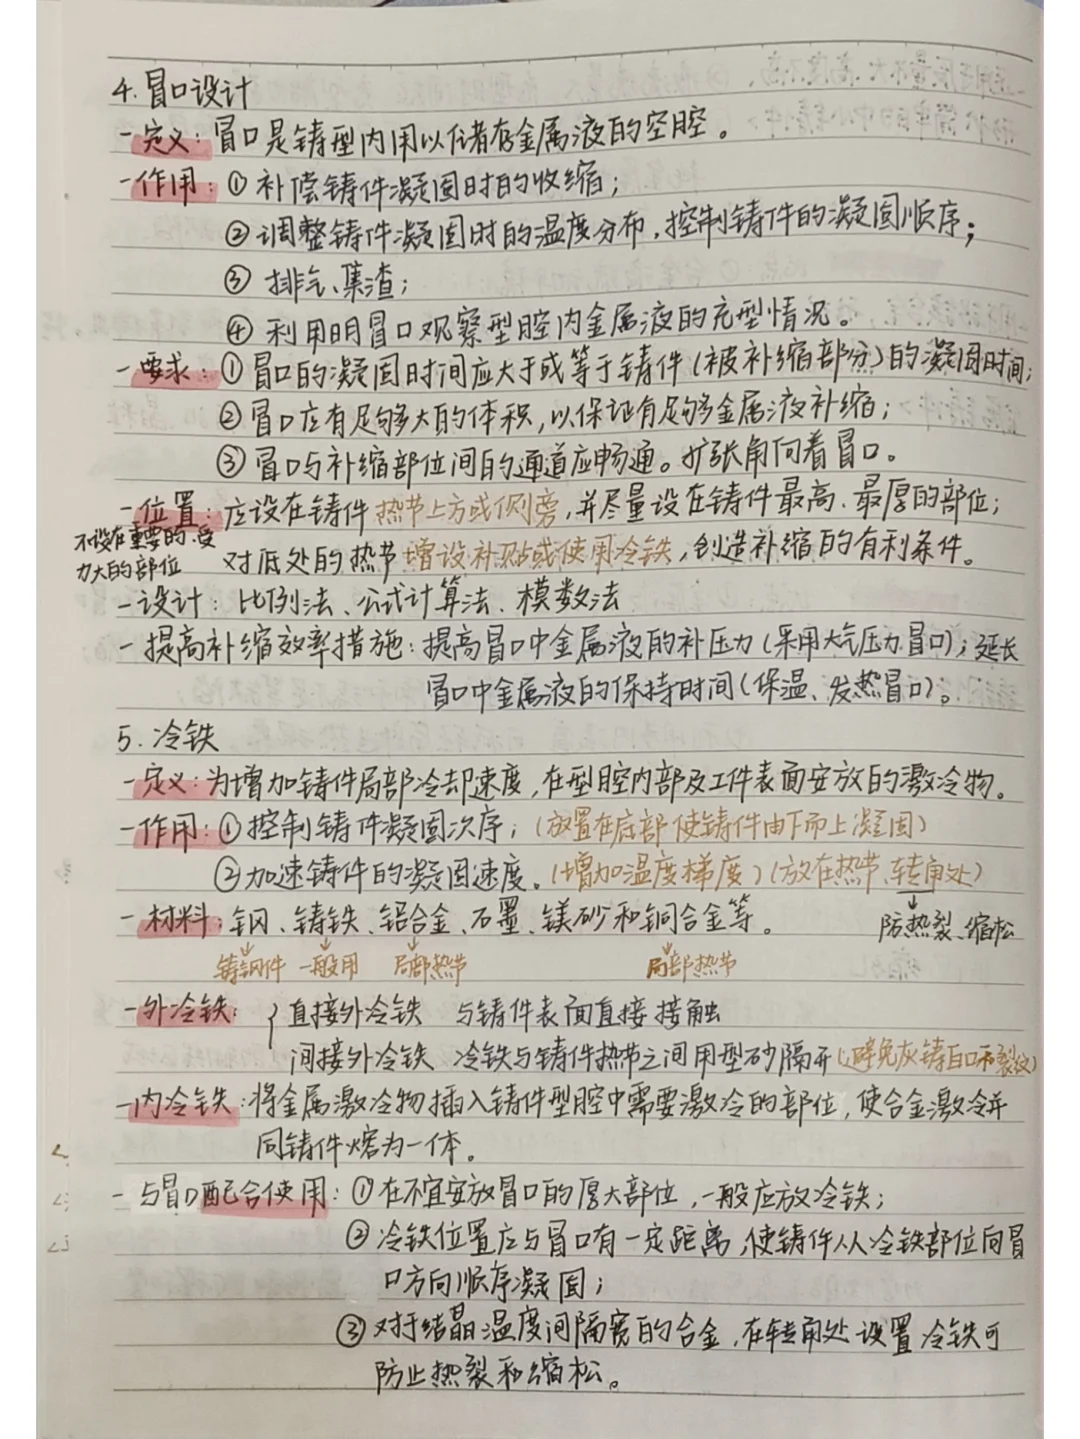 4. 冒口设计
- 定义：冒口是铸型内用以储存金属液的空腔。
- 作用：① 补偿铸件凝固时的收缩；
② 调整铸件凝固时的温度分布，控制铸件的凝固顺序；
③ 排气、集渣；
④ 利用明冒口观察型腔内金属液的充型情况。
- 要求：① 冒口的凝固时间应大于或等于铸件（被补缩部分）的凝固时间；
② 冒口应有足够大的体积，以保证有足够金属液补缩；
③ 冒口与补缩部位间的通道应畅通。扩张角向着冒口。
- 位置：应设在铸件热节上方或侧旁，并尽量设在铸件最高、最厚的部位；
不设在重要的、受
力大的部位
对低处的热节增设补贴或使用冷铁，创造补缩的有利条件。
- 设计：比例法、公式计算法、模数法
- 提高补缩效率措施：提高冒口中金属液的补压力（采用大气压力冒口）；延长
冒口中金属液的保持时间（保温、发热冒口）。
5. 冷铁
- 定义：为增加铸件局部冷却速度，在型腔内部及工件表面安放的激冷物。
- 作用：① 控制铸件凝固次序；（放置在底部使铸件由下而上凝固）
② 加速铸件的凝固速度。（增加温度梯度）（放在热节、转角处）
- 材料：钢、铸铁、铝合金、石墨、镁砂和铜合金等。
↓
防热裂、缩松
↓铸钢件 ↓一般用 ↓局部热节 ↓局部热节
- 外冷铁：{ 直接外冷铁 与铸件表面直接接触
间接外冷铁 冷铁与铸件热节之间用型砂隔开（避免灰铸白口和裂纹）
- 内冷铁：将金属激冷物插入铸件型腔中需要激冷的部位，使合金激冷并
同铸件熔为一体。
- 与冒口配合使用：① 在不宜安放冒口的厚大部位，一般应放冷铁；
② 冷铁位置应与冒口有一定距离，使铸件从冷铁部位向冒
口方向顺序凝固；
③ 对于结晶温度间隔宽的合金，在转角处设置冷铁可
防止热裂和缩松。